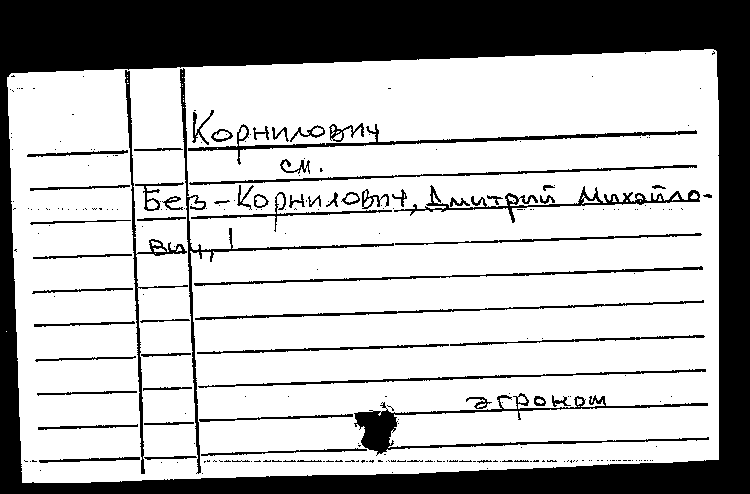 Корнилович
см.
Без-Корнилович, Дмитрий Михайло-
вич, !
агроном